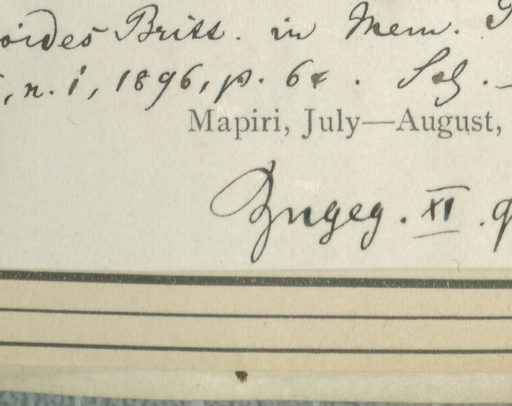 oides Britt. in Mem.
, n. 1, 1896, p. 64.
Mapiri, July—August,
Zugeg. XI.